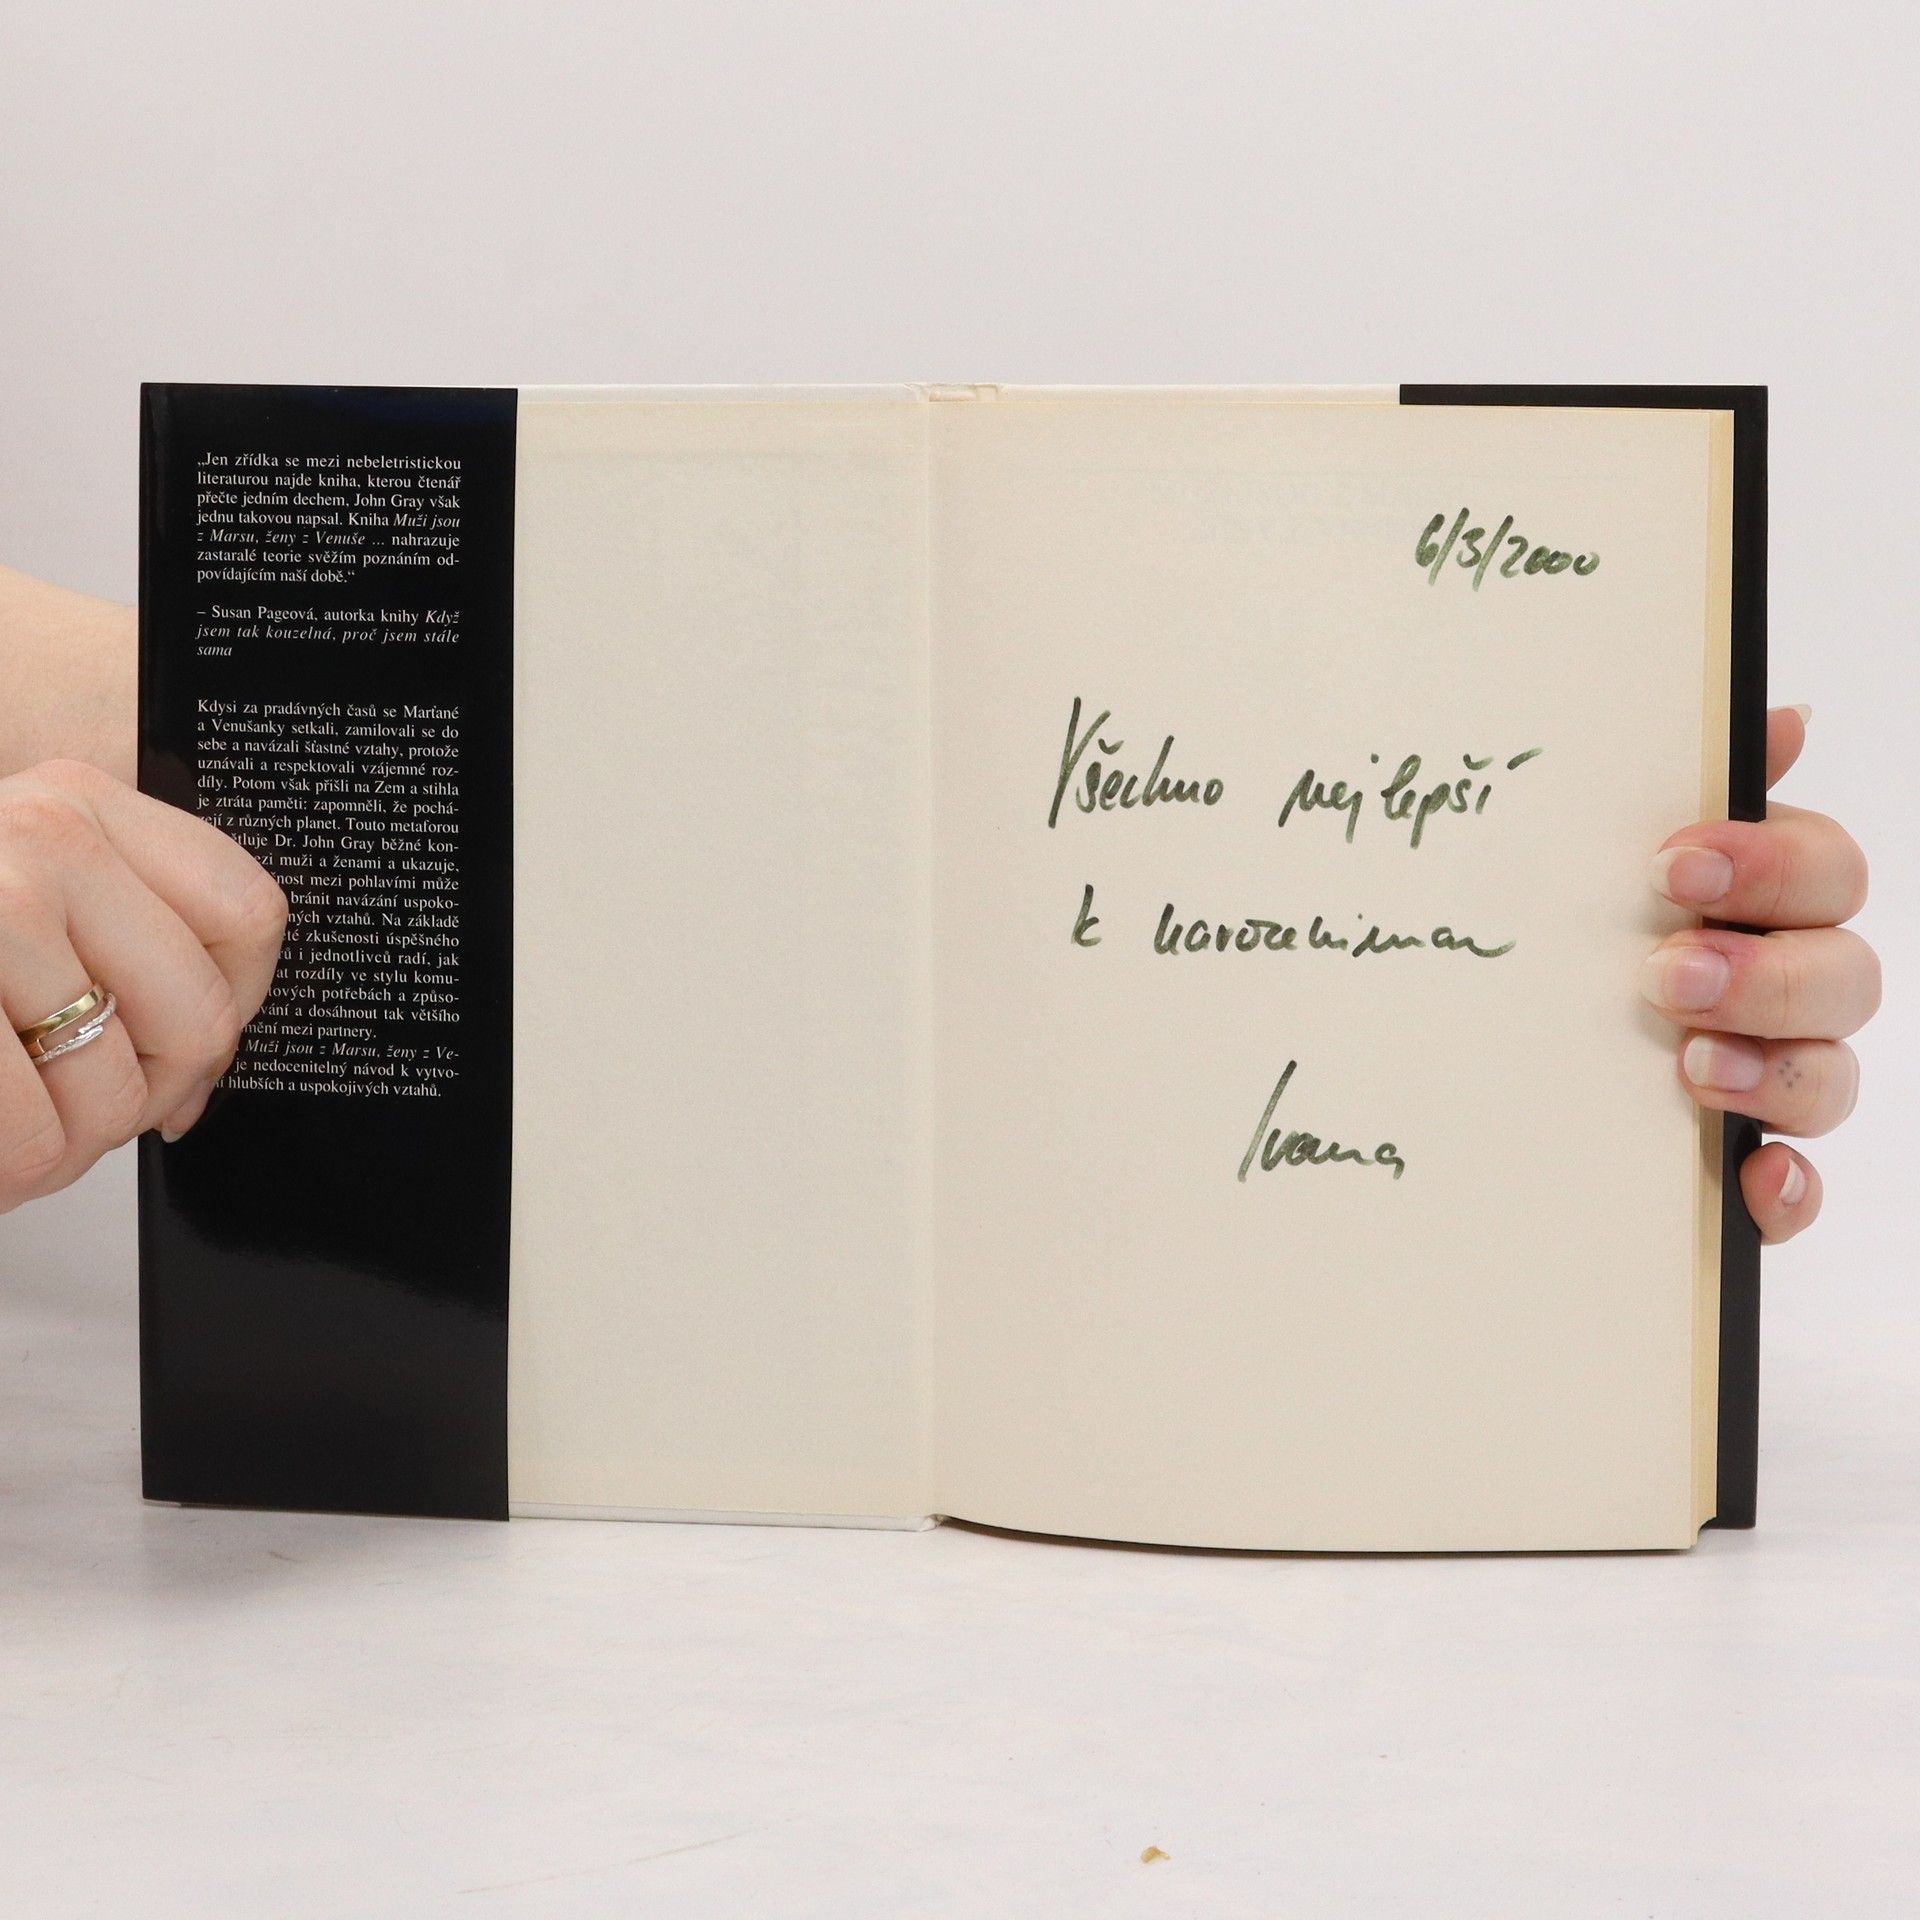 „Jen zřídka se mezi nebeletristickou
literaturou najde kniha, kterou čtenář
přečte jedním dechem, John Gray však
jednu takovou napsal. Kniha Muži jsou
z Marsu, ženy z Venuše ... nahrazuje
zastaralé teorie svěžím poznáním od-
povídajícím naší době.“
– Susan Pageová, autorka knihy Když
jsem tak kouzelná, proč jsem stále
sama
Kdysi za pradávných časů se Marťané
a Venušanky setkali, zamilovali se do
sebe a navázali šťastné vztahy, protože
uznávali a respektovali vzájemné roz-
díly. Potom však přišli na Zem a stihla
je ztráta paměti: zapomněli, že pochá-
zejí z různých planet. Touto metaforou
Dr. John Gray běžné kon-
muži a ženami a ukazuje,
mezi pohlavími může
bránit navázání uspoko-
vztahů. Na základě
zkušenosti úspěšného
i jednotlivců radí, jak
rozdíly ve stylu komu-
potřebách a způso-
a dosáhnout tak většího
mezi partnery.
Muži jsou z Marsu, ženy z Ve-
je nedocenitelný návod k vytvo-
hlubších a uspokojivých vztahů.
6/3/2000
Všechno nejlepší
k narozeninam
Ivana